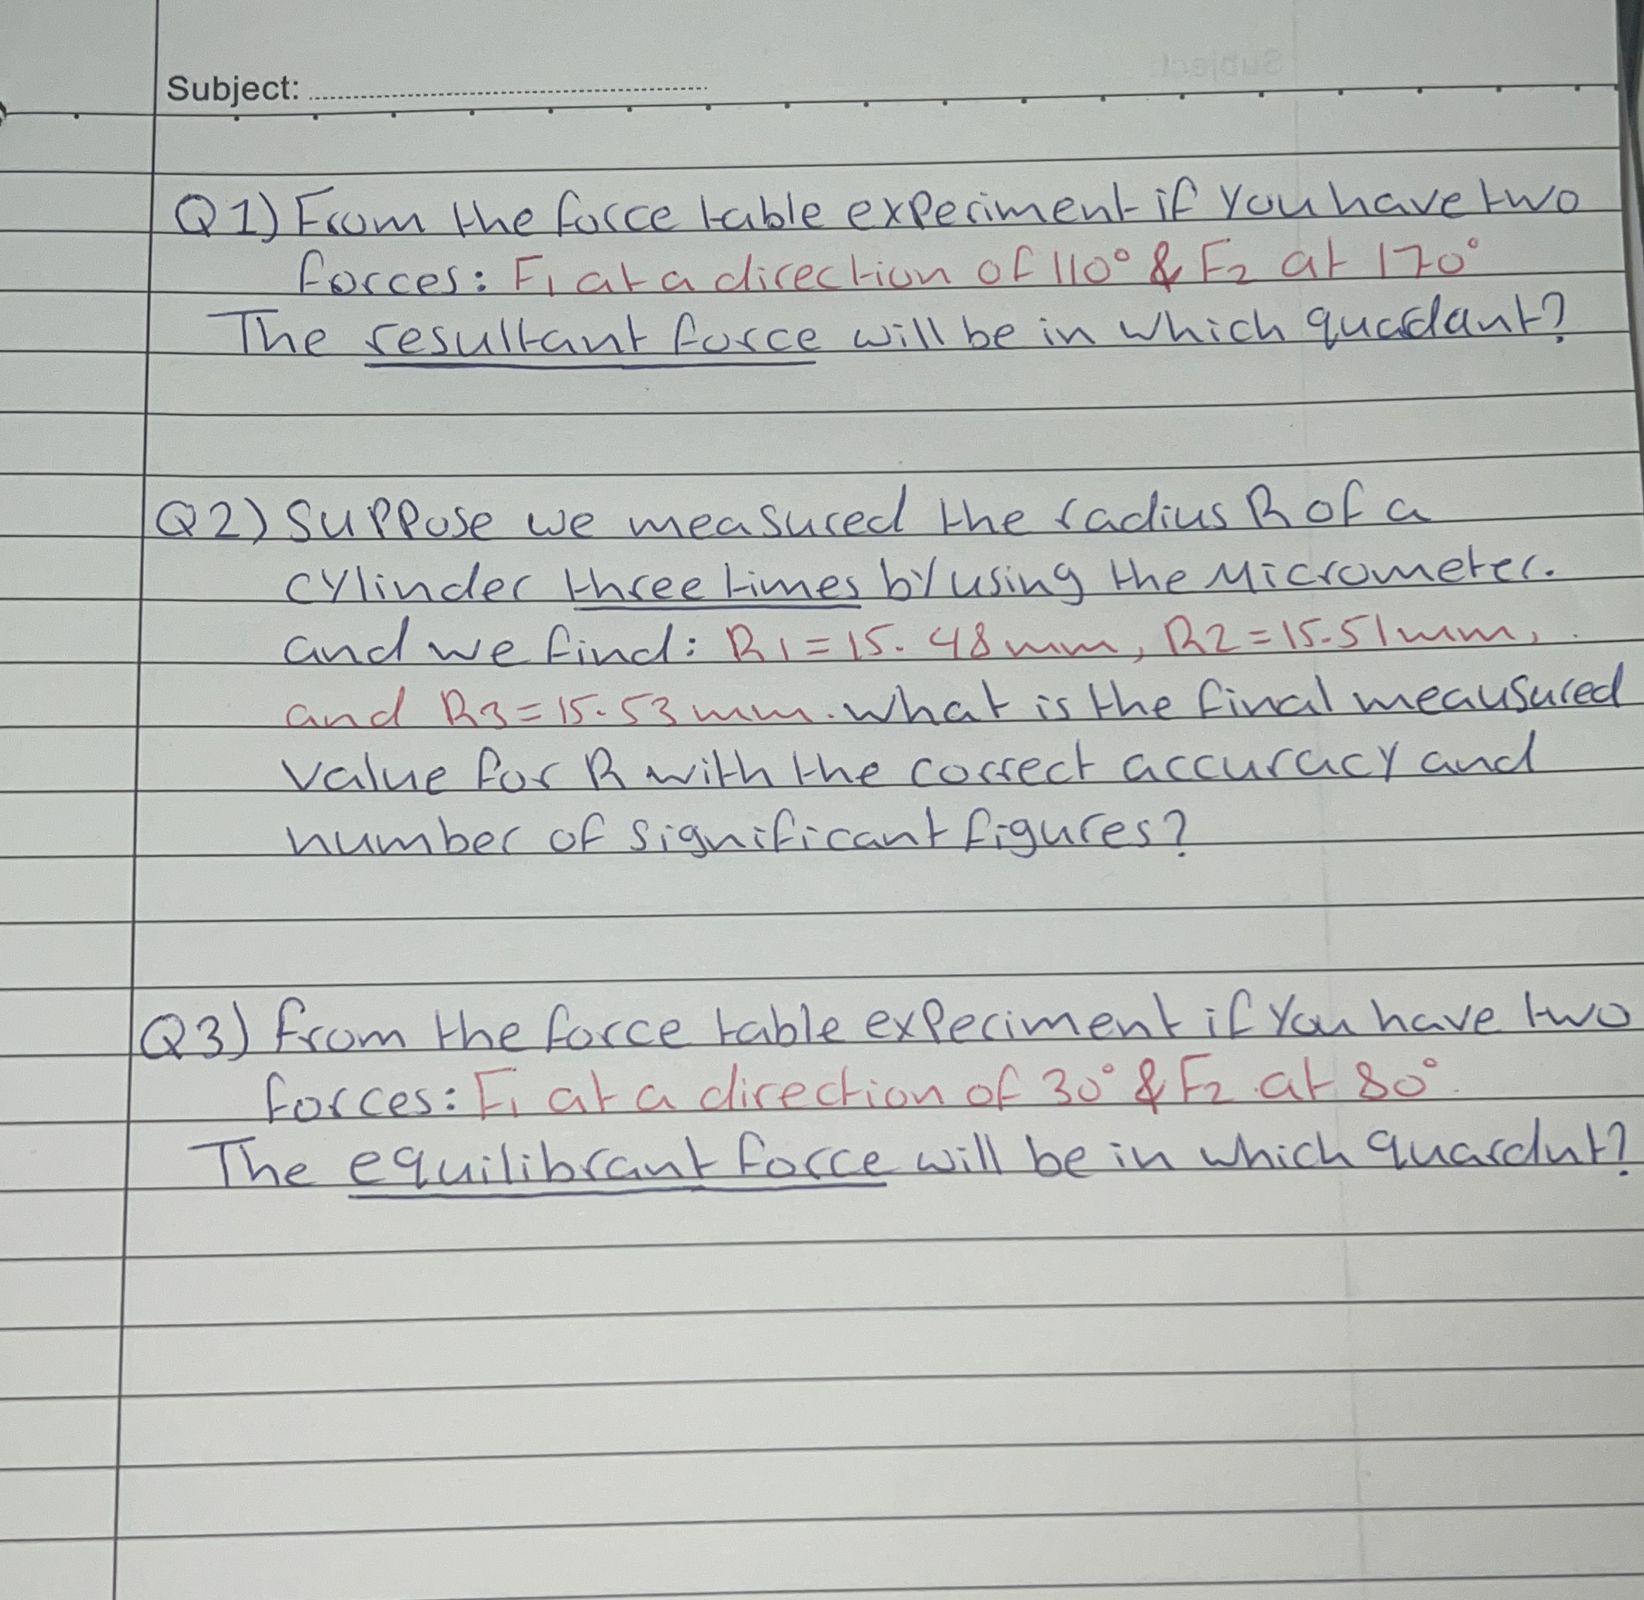 Subject:
Q1) From the force table experiment if you have two
forces: F1 at a direction of 110° & F2 at 170°
The resultant force will be in which quadant?
Q2) Suppose we measured the radius R of a
cylinder three times by using the Micrometer.
and we find: R1=15.48mm, R2=15.51mm,
and R3=15.53mm. what is the final meausured
value for R with the correct accuracy and
number of significant figures?
Q3) from the force table experiment if you have two
forces: F1 at a direction of 30° & F2 at 80°.
The equilibrant force will be in which quardnt?